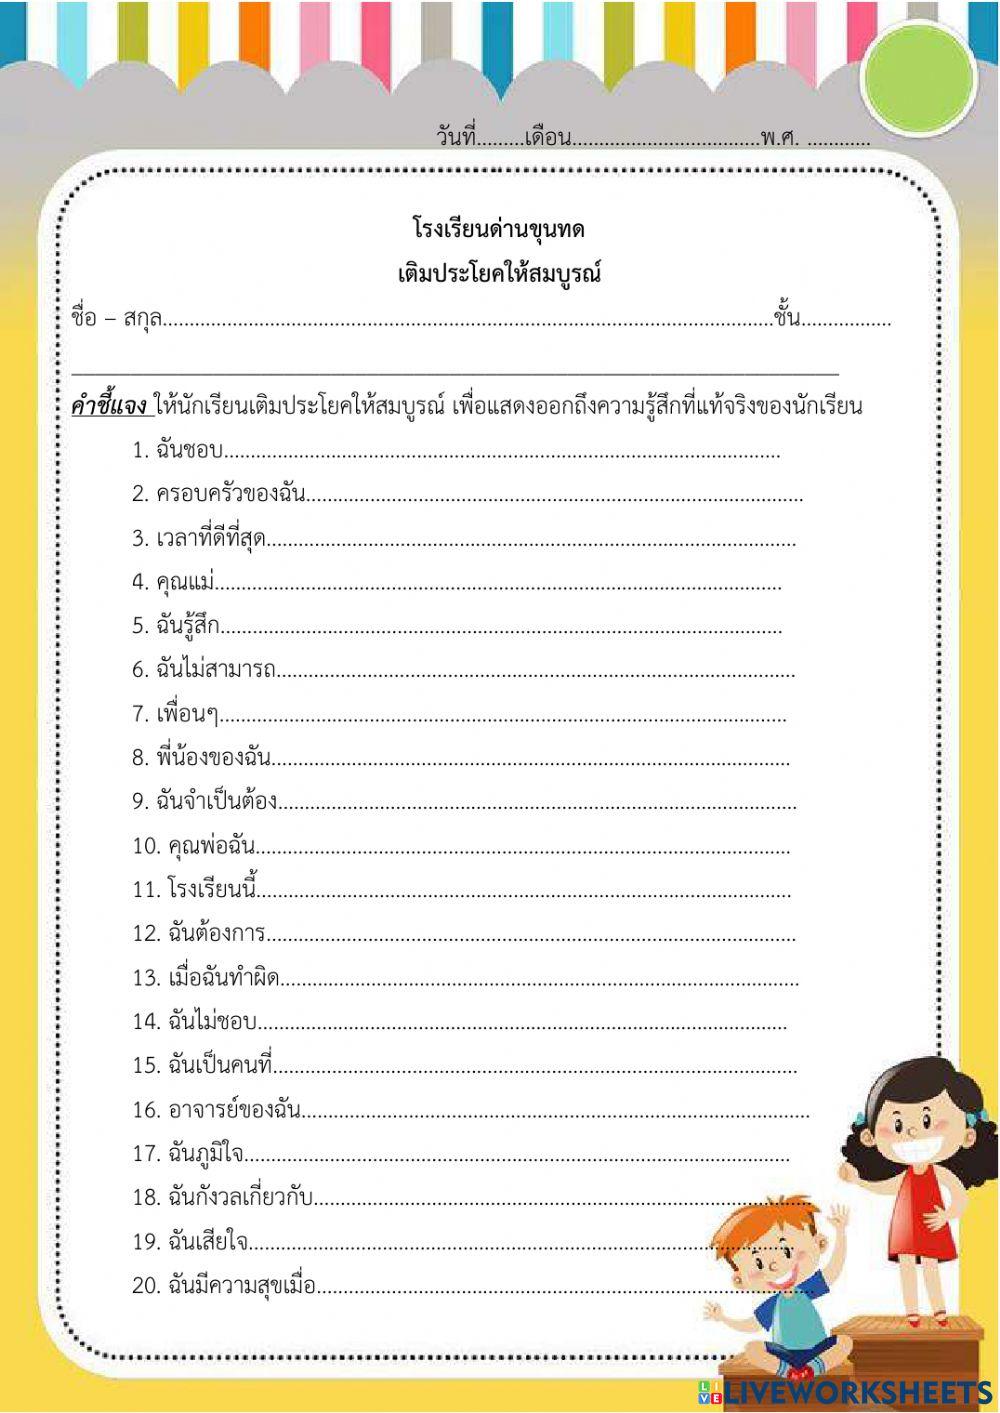 วันที่.........เดือน...................................พ.ศ. ............
โรงเรียนด่านขุนทด
เติมประโยคให้สมบูรณ์
ชื่อ – สกุล..................................................................................................................ชั้น.................
คำชี้แจง ให้นักเรียนเติมประโยคให้สมบูรณ์ เพื่อแสดงออกถึงความรู้สึกที่แท้จริงของนักเรียน
1. ฉันชอบ.............................................................................................................
2. ครอบครัวของฉัน.............................................................................................
3. เวลาที่ดีที่สุด...................................................................................................
4. คุณแม่..........................................................................................................
5. ฉันรู้สึก.........................................................................................................
6. ฉันไม่สามารถ.................................................................................................
7. เพื่อนๆ..........................................................................................................
8. พี่น้องของฉัน.................................................................................................
9. ฉันจำเป็นต้อง.................................................................................................
10. คุณพ่อฉัน....................................................................................................
11. โรงเรียนนี้....................................................................................................
12. ฉันต้องการ...................................................................................................
13. เมื่อฉันทำผิด.................................................................................................
14. ฉันไม่ชอบ...................................................................................................
15. ฉันเป็นคนที่..................................................................................................
16. อาจารย์ของฉัน...............................................................................................
17. ฉันภูมิใจ......................................................................................................
18. ฉันกังวลเกี่ยวกับ.............................................................................................
19. ฉันเสียใจ......................................................................................................
20. ฉันมีความสุขเมื่อ.............................................................................................
LIVEWORKSHEETS